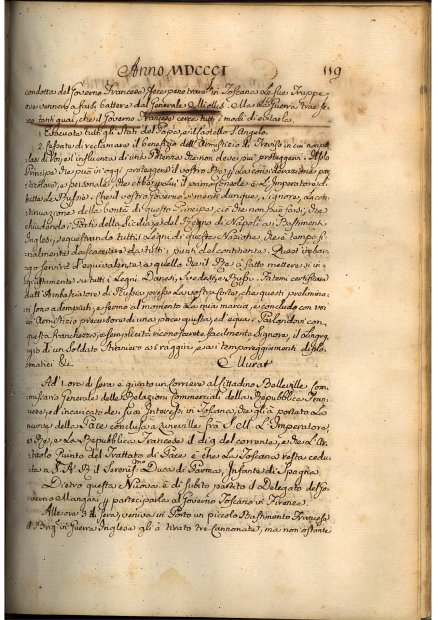 Anno MDCCCI 119
condotta del Governo Francese fece penetrare in Toscana le sue Truppe
ove vennero a farsi battere dal Generale Miollis. Ma la Guerra trae se-
co tanti guai, che il Governo Francese cerca tutti i modi di evitarla.
1. Evacuate tutti gli Stati del Papa, e il Castello S. Angelo.
2. cessate di reclamare il benefizio dell'Armistizio di Treviso in cui non
di Voi, nè l'influenza di una Potenza che non deve più proteggervi. Il solo
Principe che più in oggi proteggere il vostro Re p. la considerazione par-
ticolare, e personale che ebbe p. lui il primo Console è l'Imperatore di
tutte le Russie. Che il vostro Governo si meriti dunque, Signore, la con-
tinuazione della bontà di questo Principe, ciò che non può farsi, che
chiudendo i Porti della Sicilia, e del Regno di Napoli ai Bastimenti
Inglesi, e sequestrando tutti i Legni di questa Nazione, che è tempo fi-
nalmente di scacciare da tutti i punti del continente. Quest'imbar-
go servirà d'equivalente a quello che il Re à fatto mettere si in-
giustamente su tutti i Legni Danesi, Svedesi, e Russi. Fatemi certificare
dall'Ambasciatore di Russia presso la vostra Corte, che questi prelimina-
ri sono adempiti, e fermo al momento la mia marcia, e concludo con voi
un Armistizio precursore di una pace giusta, ed equa.
questa franchezza, e semplicità riconoscerete facilmente Signore, il Lingua-
gio di un Soldato straniero ai raggiri, e ai temporeggiamenti diplo-
matici &c. Murat
Ad 1. ora di sera è giunto un corriere al Cittadino Belleville Com-
missario Generale delle Relazioni Commerciali della Repubblica Fran-
cese, ed incaricato de' suoi Interessi in Toscana, che gli à portato la
nuova della Pace conclusa a Luneville frà S. M. L'Imperatore,
e Re, e la Repubblica Francese il dì 9 del corrente, e che l'Ar-
ticolo Quinto del Trattato di Pace è che la Toscana resta cedu-
ta a S. A. R. il Serenis. Duca di Parma, Infante di Spagna.
Dietro questa Nuova è di subito partito il Delegato del Go-
verno Mangani p. parteciparla al Governo Toscano in Firenze.
Alle ore 3 di sera, veniva in Porto un piccolo Bastimento Francese
in Guerra Inglese gli à tirato tre cannonate, ma non ostante